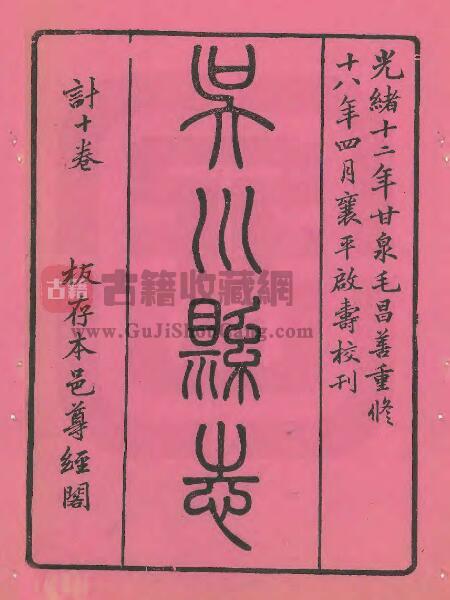 光緒十二年甘泉毛昌善重修
十八年四月襄平啟壽校刊
吳川縣志
計十卷
板存本邑尊經閣
古籍
古籍收藏網
www.GuJiShouCang.com